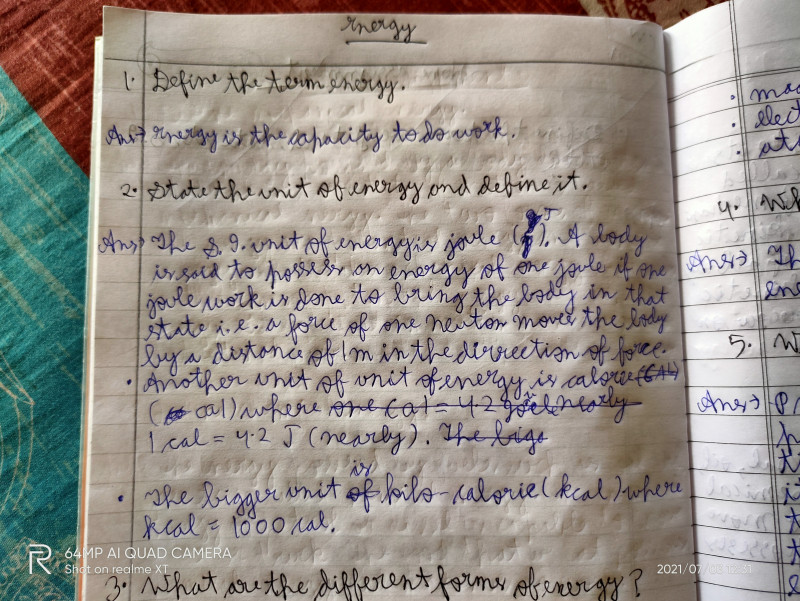 Energy
1. Define the term energy.
Ans→ Energy is the capacity to do work.
2. State the unit of energy and define it.
Ans→ The S.I. unit of energy is joule (J). A body
is said to possess an energy of one joule if one
joule work is done to bring the body in that
state i.e. a force of one newton moves the body
by a distance of 1m in the dirrection of force.
• Another unit of unit of energy is calorie (CAL)
(cal) where one cal = 4.2 joul nearly
1 cal = 4.2 J (nearly). The bigg
is
• The bigger unit of kilo-calorie (kcal) where
kcal = 1000 cal.
3. What are the different forms of energy?
• mag
• elect
• at
4. Wh
Ans→ Th
ene
5. W
Ans→ P
64MP AI QUAD CAMERA
Shot on realme XT